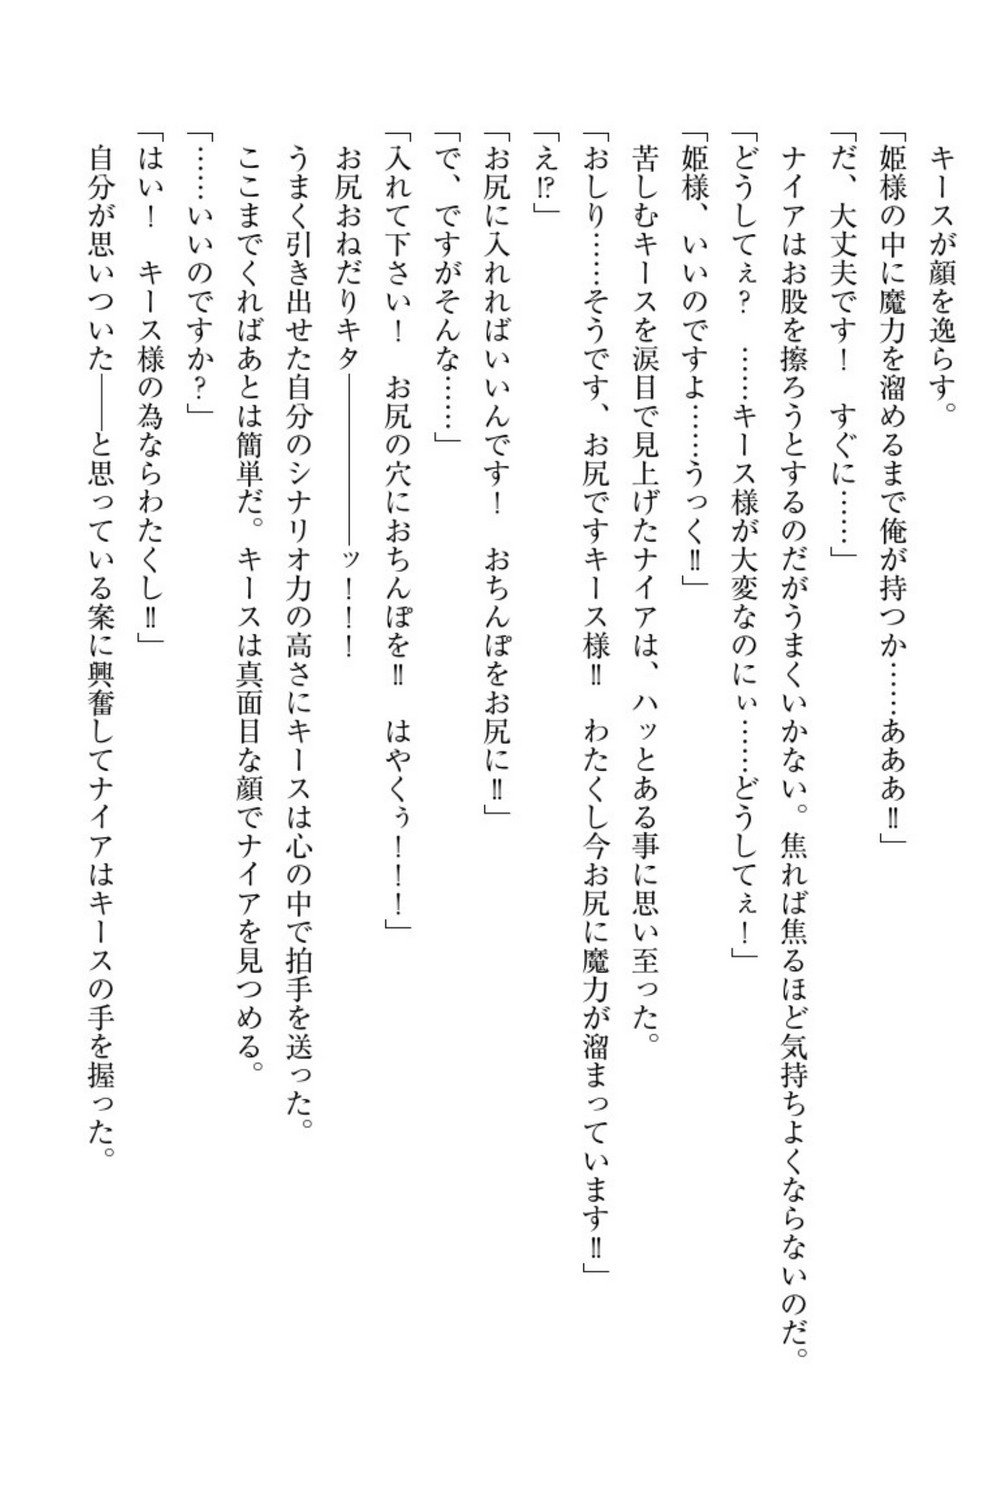 キースが顔を逸らす。
「姫様の中に魔力を溜めるまで俺が持つか……あああ‼」
「だ、大丈夫です！　すぐに……」
ナイアはお股を擦ろうとするのだがうまくいかない。焦れば焦るほど気持ちよくならないのだ。
「どうしてぇ？　……キース様が大変なのにぃ……どうしてぇ！」
「姫様、いいのですよ……うっく‼」
苦しむキースを涙目で見上げたナイアは、ハッとある事に思い至った。
「おしり……そうです、お尻ですキース様‼　わたくし今お尻に魔力が溜まっています‼」
「え⁉」
「お尻に入れればいいんです！　おちんぽをお尻に‼」
「で、ですがそんな……」
「入れて下さい！　お尻の穴におちんぽを‼　はやくぅ！！！」
お尻おねだりキタ――――――ッ！！！
うまく引き出せた自分のシナリオ力の高さにキースは心の中で拍手を送った。
ここまでくればあとは簡単だ。キースは真面目な顔でナイアを見つめる。
「……いいのですか？」
「はい！　キース様の為ならわたくし‼」
自分が思いついた――と思っている案に興奮してナイアはキースの手を握った。